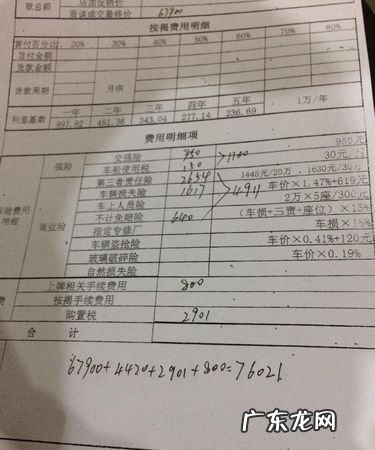 款总额
店面促销价
商谈成交最终价 67900
按揭费用明细
首付百分比 20% 30% 40% 50% 60% 70% 80%
首付金额
贷款金额
贷款周期 月供
一年 二年 三年 四年 五年 1万/年
利息基数 897.82 481.36 343.04 277.14 236.69
费用明细项
强险 交强险 950 950元
车船使用税 150 1100 30元.月
第三者责任险 2654 1445元/20万 1630元/30万
车辆损失险 1617 4911 车价×1.47%+619元
保险费用明细 商业险 车上人员险 2万×5座/300元
不计免赔险 640 (车损+三责+座位)×15%
指定专修厂 车损×15%
车辆盗抢险 车价×0.41%+120元
玻璃破碎险 车价×0.19%
自然损失险
费 上牌相关手续费用 800
按揭手续费用
购置税 2901
合 计
67900+4420+2901+800=76021
广东龙网